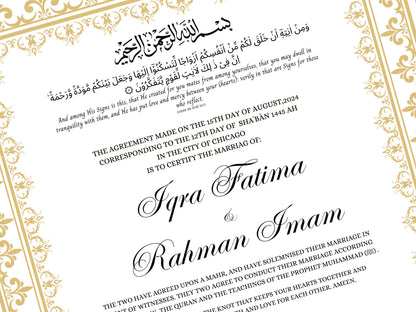 بسم الله الرحمن الرحيم
وَمِنْ آيَاتِهِ أَنْ خَلَقَ لَكُم مِّنْ أَنفُسِكُمْ أَزْوَاجًا لِّتَسْكُنُوا إِلَيْهَا وَجَعَلَ بَيْنَكُم مَّوَدَّةً وَرَحْمَةً
إِنَّ فِي ذَٰلِكَ لَآيَاتٍ لِّقَوْمٍ يَتَفَكَّرُونَ
And among His Signs is this, that He created for you mates from among yourselves, that you may dwell in
tranquility with them, and He has put love and mercy between your (hearts): verily in that are Signs for those
who reflect.
THE AGREEMENT MADE ON THE 15TH DAY OF AUGUST,2024
CORRESPONDING TO THE 12TH DAY OF SHA'BĀN 1445 AH
IN THE CITY OF CHICAGO
IS TO CERTIFY THE MARRIAG OF:
Iqra Fatima
&
Rahman Imam
THE TWO HAVE AGREED UPON A MAHR, AND HAVE SOLEMNISED THEIR MARRIAGE IN
OF WITNESSES, THEY TWO AGREE TO CONDUCT THEIR MARRIAGE ACCORDING
THE QURAN AND THE TEACHINGS OF THE PROPHET MUHAMMAD (ﷺ).
THE KNOT THAT KEEPS YOUR HEARTS TOGETHER AND
AND LOVE FOR EACH OTHER. AMEEN.